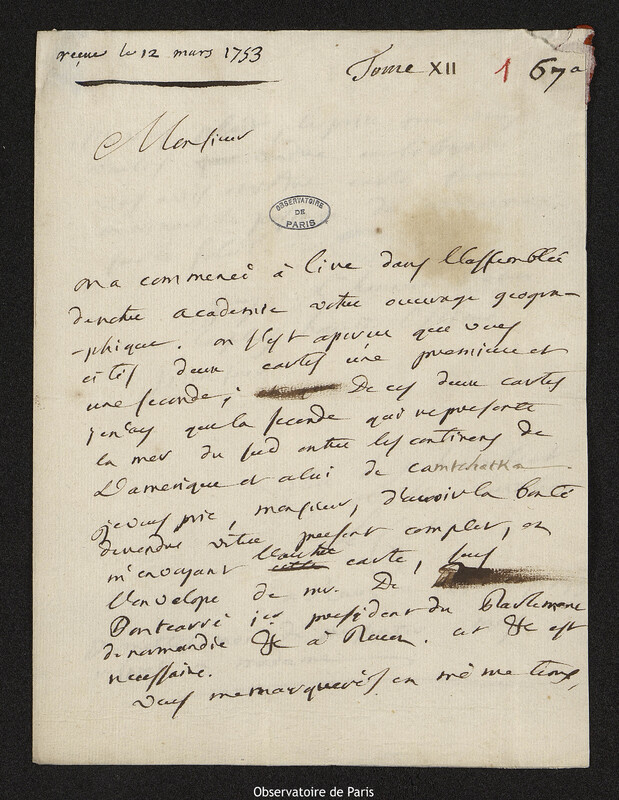 reçue le 12 mars 1753
Tome XII 1 67a
Monsieur
OBSERVATOIRE
DE
PARIS
on a commencé à lire dans l'assemblée
denotre academie votre ouvrage geogra-
-phique. on s'est apercu que vous
cités deux cartes une premiere et
une seconde; De ces deux cartes
jen'ay que la seconde qui represente
la mer du sud entre les continens de
L'amerique et celui de camtchatka.
jevous prie, monsieur, d'avoir la bonté
derendre votre present complet, en
m'envoyant l'autre carte, sous
l'envelope de mr. De
Pontcarré 1er president du Parlement
denormandie &c à Rouen. cet &c est
necessaire.
vous memarquerés en même tems,
Observatoire de Paris